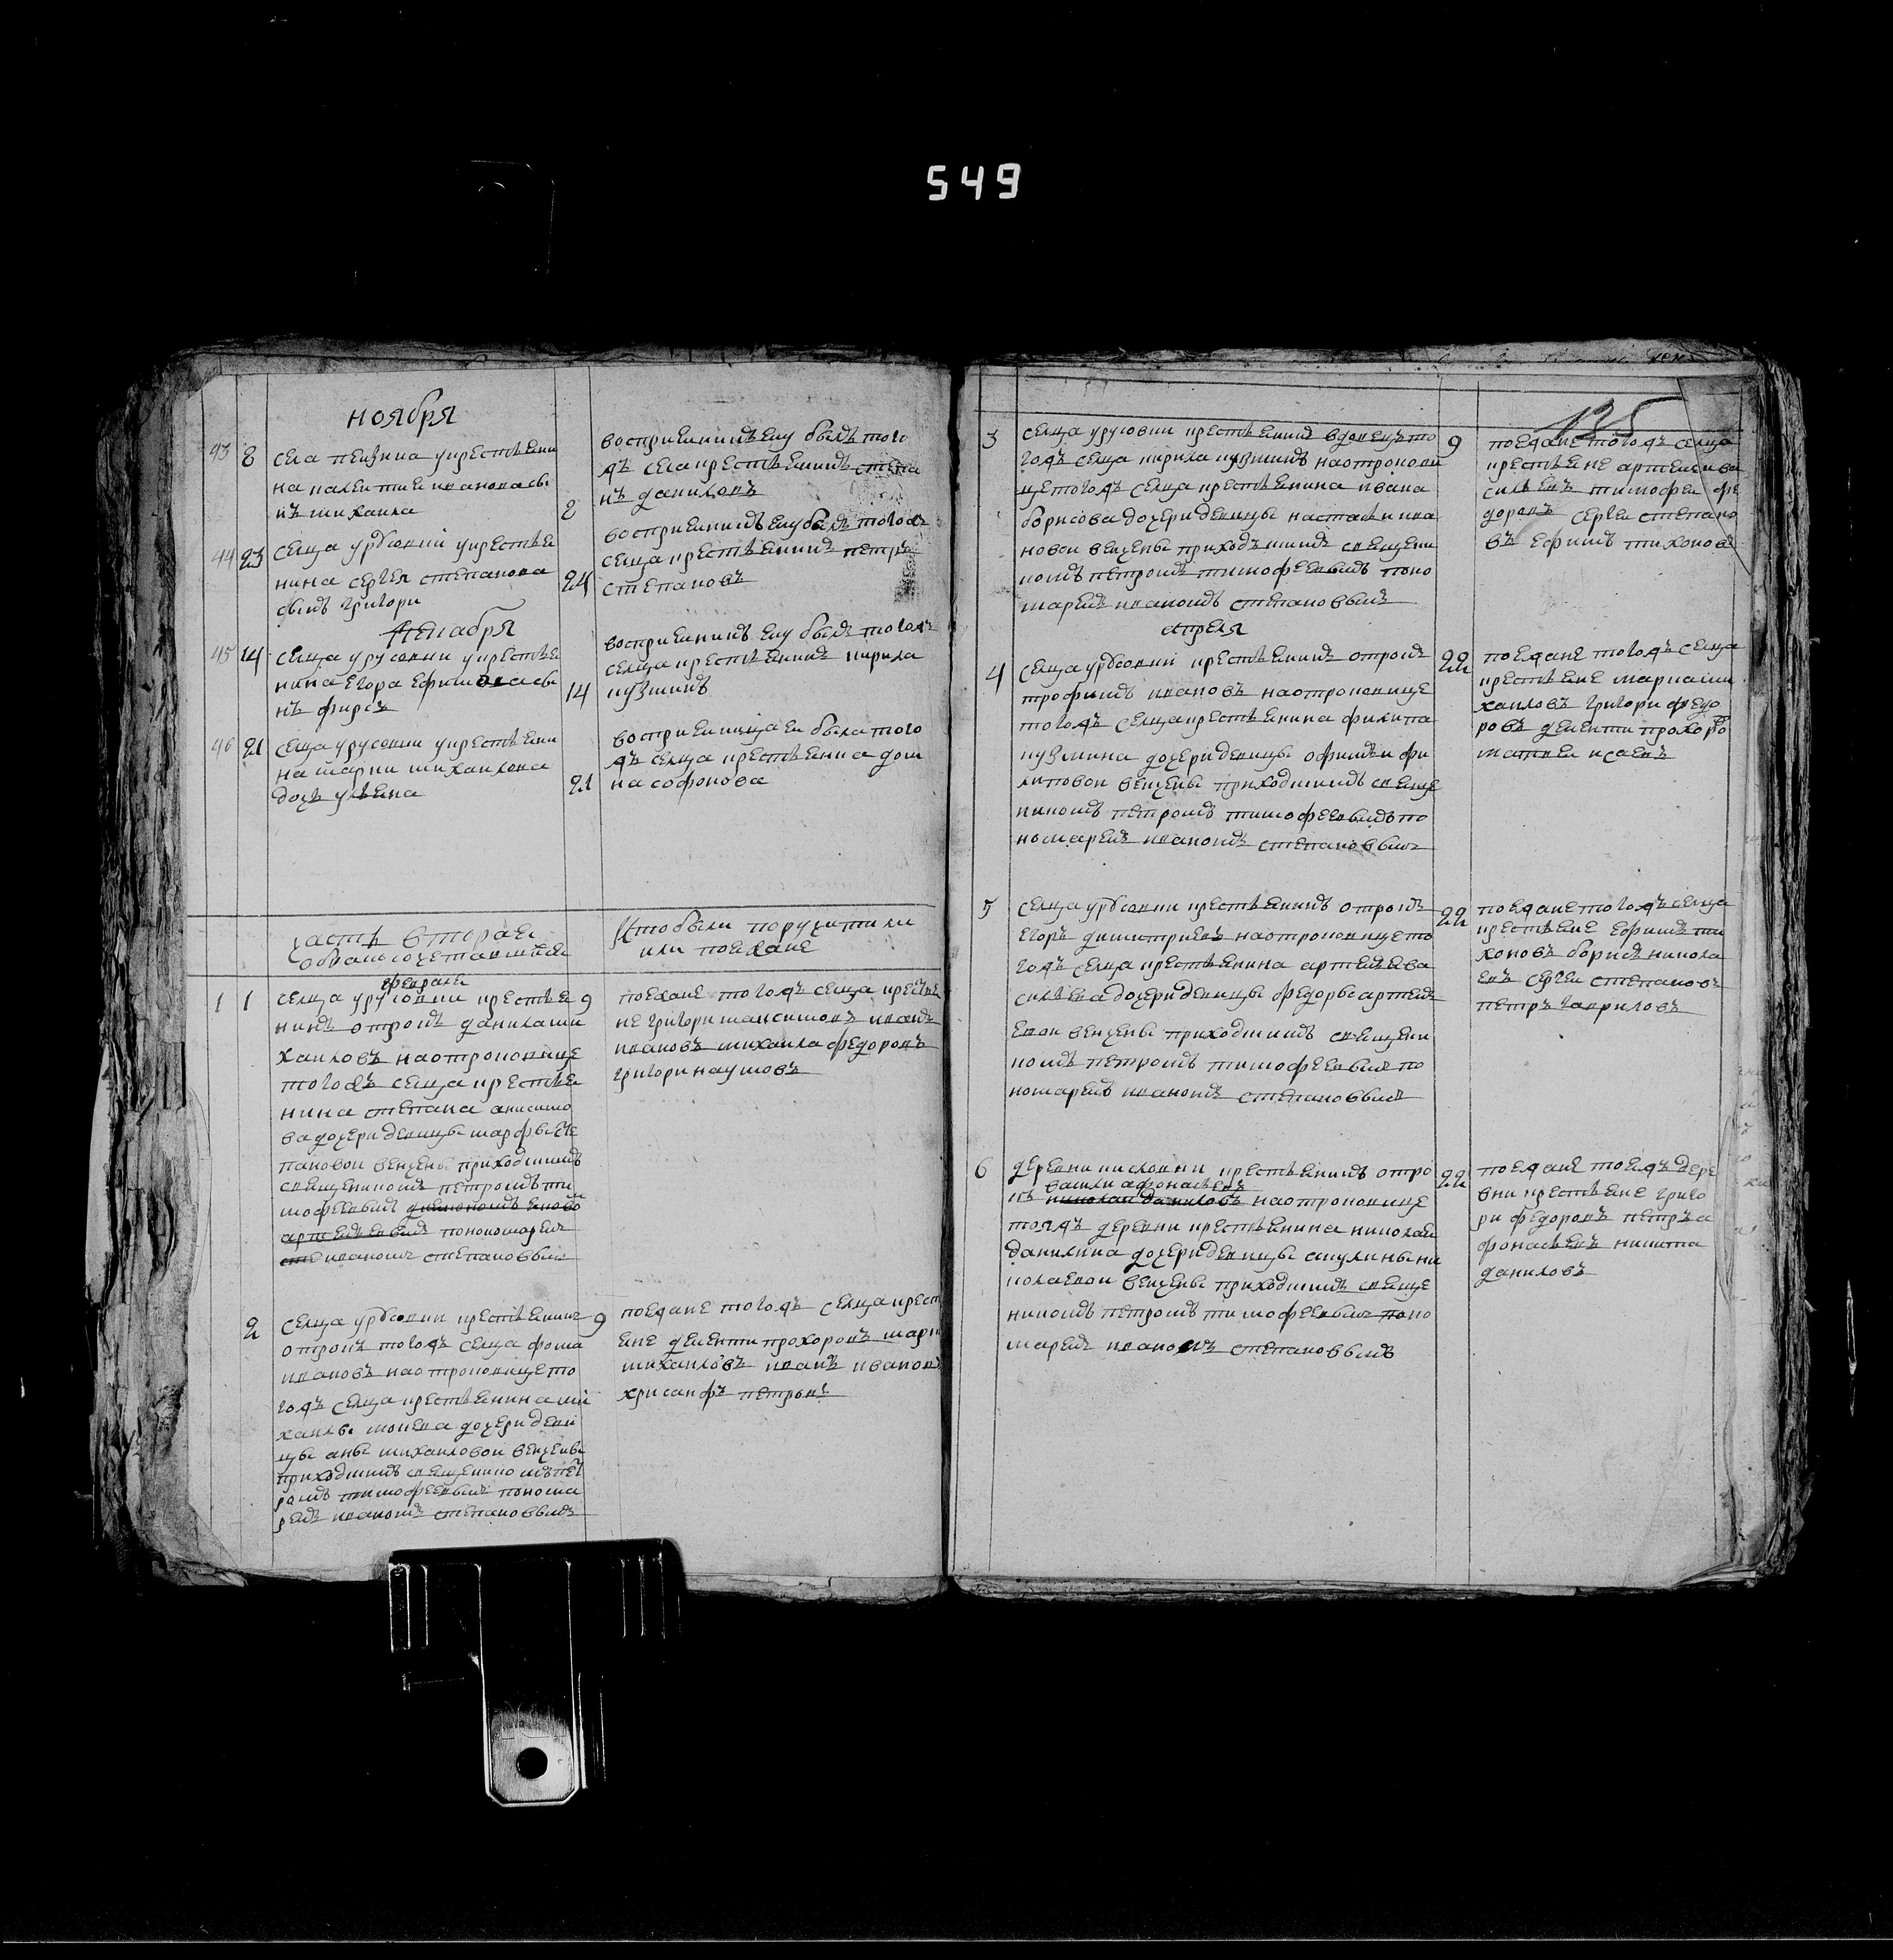 549
ноября
43 8 села пензина укрестьени
на калентие ивановасы
нъ михаила
8
восприемникъ ему былъ того
жъ села крестьенинъ степа
нъ даниловъ
44 23 селца урусовки укрестье
нина сергея степанова
сынъ григори
24
восприемникъ ему былъ тогожъ
селца крестьенинъ петръ
степановъ
декабря
45 14 селца урусовки укрестье
нина егора ефимовасы
нъ фирсъ
14
восприемникъ ему былъ тогожъ
селца крестьенинъ кирила
кузминъ
46 21 селца урусовки укрестьени
на марки михаилова
дочь ульена
21
восприемницаеи была того
жъ селца крестьенка дом
на софонова
часть вторае
обракосочетавшихся
Кто были поручители
или поезжане
февраля
1 1 селца урусовки крестье 9
нинъ отрокъ данилами
хаиловъ наотроковице
тогожъ селца крестье
нина степана анисимо
вадочеридевицы марфысте
пановои венчены приходскимъ
священникомъ петромъ ти
мофеевымъ
пономаремъ
иваномъ степановымъ
поезжане тогожъ селца крестье
не григори максимовъ иванъ
ивановъ михаила федоровъ
григори наумовъ
2 селца урусовки крестьенинъ 9
отрокъ тогожъ селца фома
ивановъ наотроковицето
гожъ селца крестьенинами
хаилы мокева дочеридеви
цы аны михаиловои венчены
приходскимъ священикомъ пет
ромъ тимофеевымъ понома
ремъ иваномъ степановымъ
поезжане тогожъ селца крест
ене дементи прохоровъ марк
михаиловъ иванъ ивановъ
хрисанфъ петровъ
135
3 селца урусовки крестьенинъ вдовецъ то
гожъ селца кирила кузминъ наотрокови
цетогожъ селца крестьенина ивана
борисова дочеридевицы настасьиива
новои венчены приходскимъ священи
комъ петромъ тимофеевымъ поно
маремъ иваномъ степановымъ
9 поезжане тогожъ селца
крестьене артемиева
сильевъ тимофеи фе
доровъ сергеи степано
въ ефимъ тихоновъ
апреля
4 селца урусовки крестьенинъ отрокъ
трофимъ ивановъ наотроковице
тогожъ селцакрестьенина филипа
кузмина дочеридевицы офимьи фи
липовои венчены приходскимъ свяще
никомъ петромъ тимофеевымъ по
номаремъ иваномъ степановымъ
22 поезжане тогожъ селца
крестьене марками
хаиловъ григори федо
ровъ дементи прохоро
матвеи исаевъ
5 селца урусовки крестьенинъ отрокъ
егоръ димитриевъ наотроковицето
гожъ селца крестьенина артемева
сильева дочеридевицы федоры артемь
евои венчены приходскимъ священи
комъ петромъ тимофеевымъ по
номаремъ иваномъ степановымъ
22 поезжане тогожъ селца
крестьене ефимъ ти
хоновъ борисъ никола
евъ сергеи степановъ
петръ гавриловъ
6 деревни кисловки крестьенинъ отро
васили афонасьевъ
къ николаи даниловъ наотроковице
тояжъ деревни крестьенина николаи
данилина дочеридевицы акулины ни
колаевои венчены приходскимъ свяще
никомъ петромъ тимофеевымъ поно
маремъ иваномъ степановымъ
22 поезжане тоежъ дере
вни крестьене григо
ри федоровъ петръа
фонасьевъ никита
даниловъ